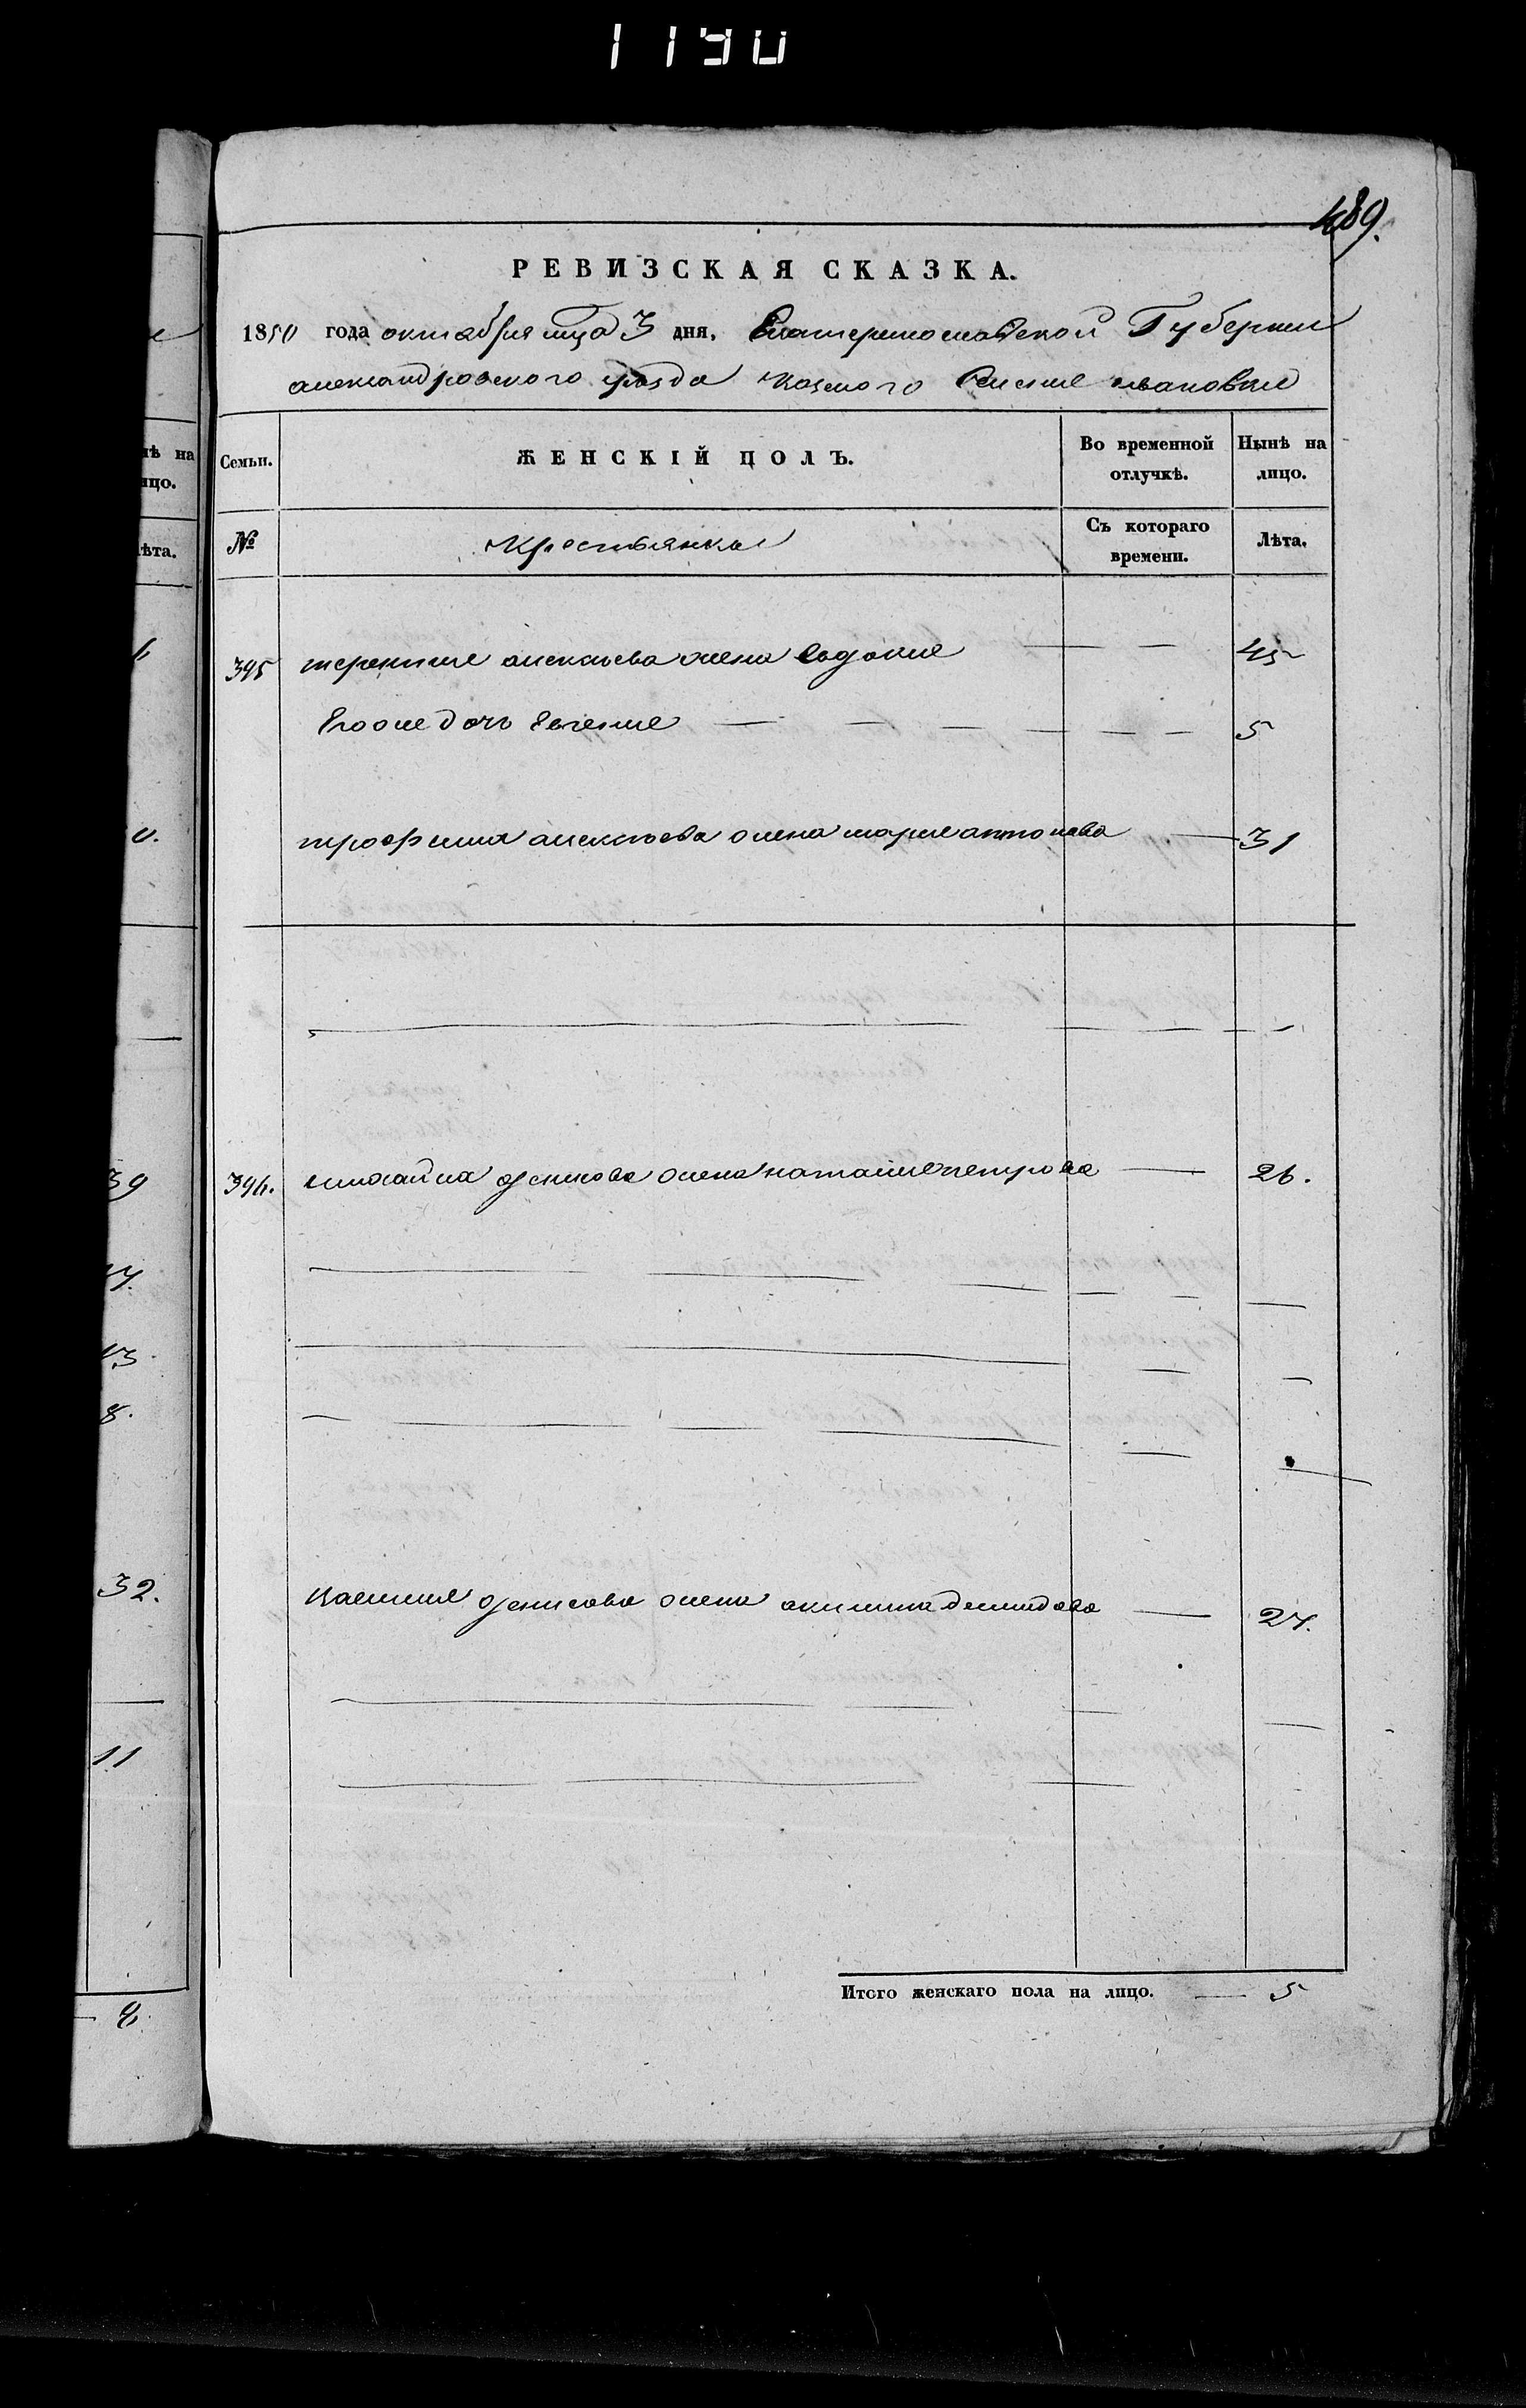 1190
489.
РЕВИЗСКАЯ СКАЗКА.
1850 года октября мца 3 дня. Екатеринославской Губернии
александровского уезда казеного Селения ивановки
Семьи. ЖЕНСКІЙ ПОЛЪ. Во временной отлучкѣ. Нынѣ на лицо.
№ Крестьянка Съ котораго времени. Лѣта.
395 терентия алексеева жена Евдокия 45
Егоже дочь Евгения 5
трофима алексеева жена мария антонова 31
396. михайла денисова жена наталия петрова 26.
денисова жена акилина демидова 27.
Итого женскаго пола на лицо. 5
нѣ на
ицо.
ѣта.
0.
39
17.
13
8.
32.
11
8.